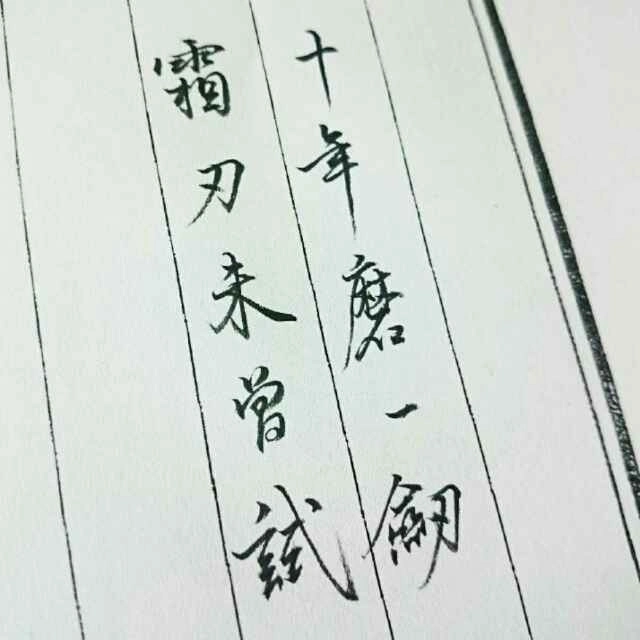 十年磨一劒
霜刃未曾試